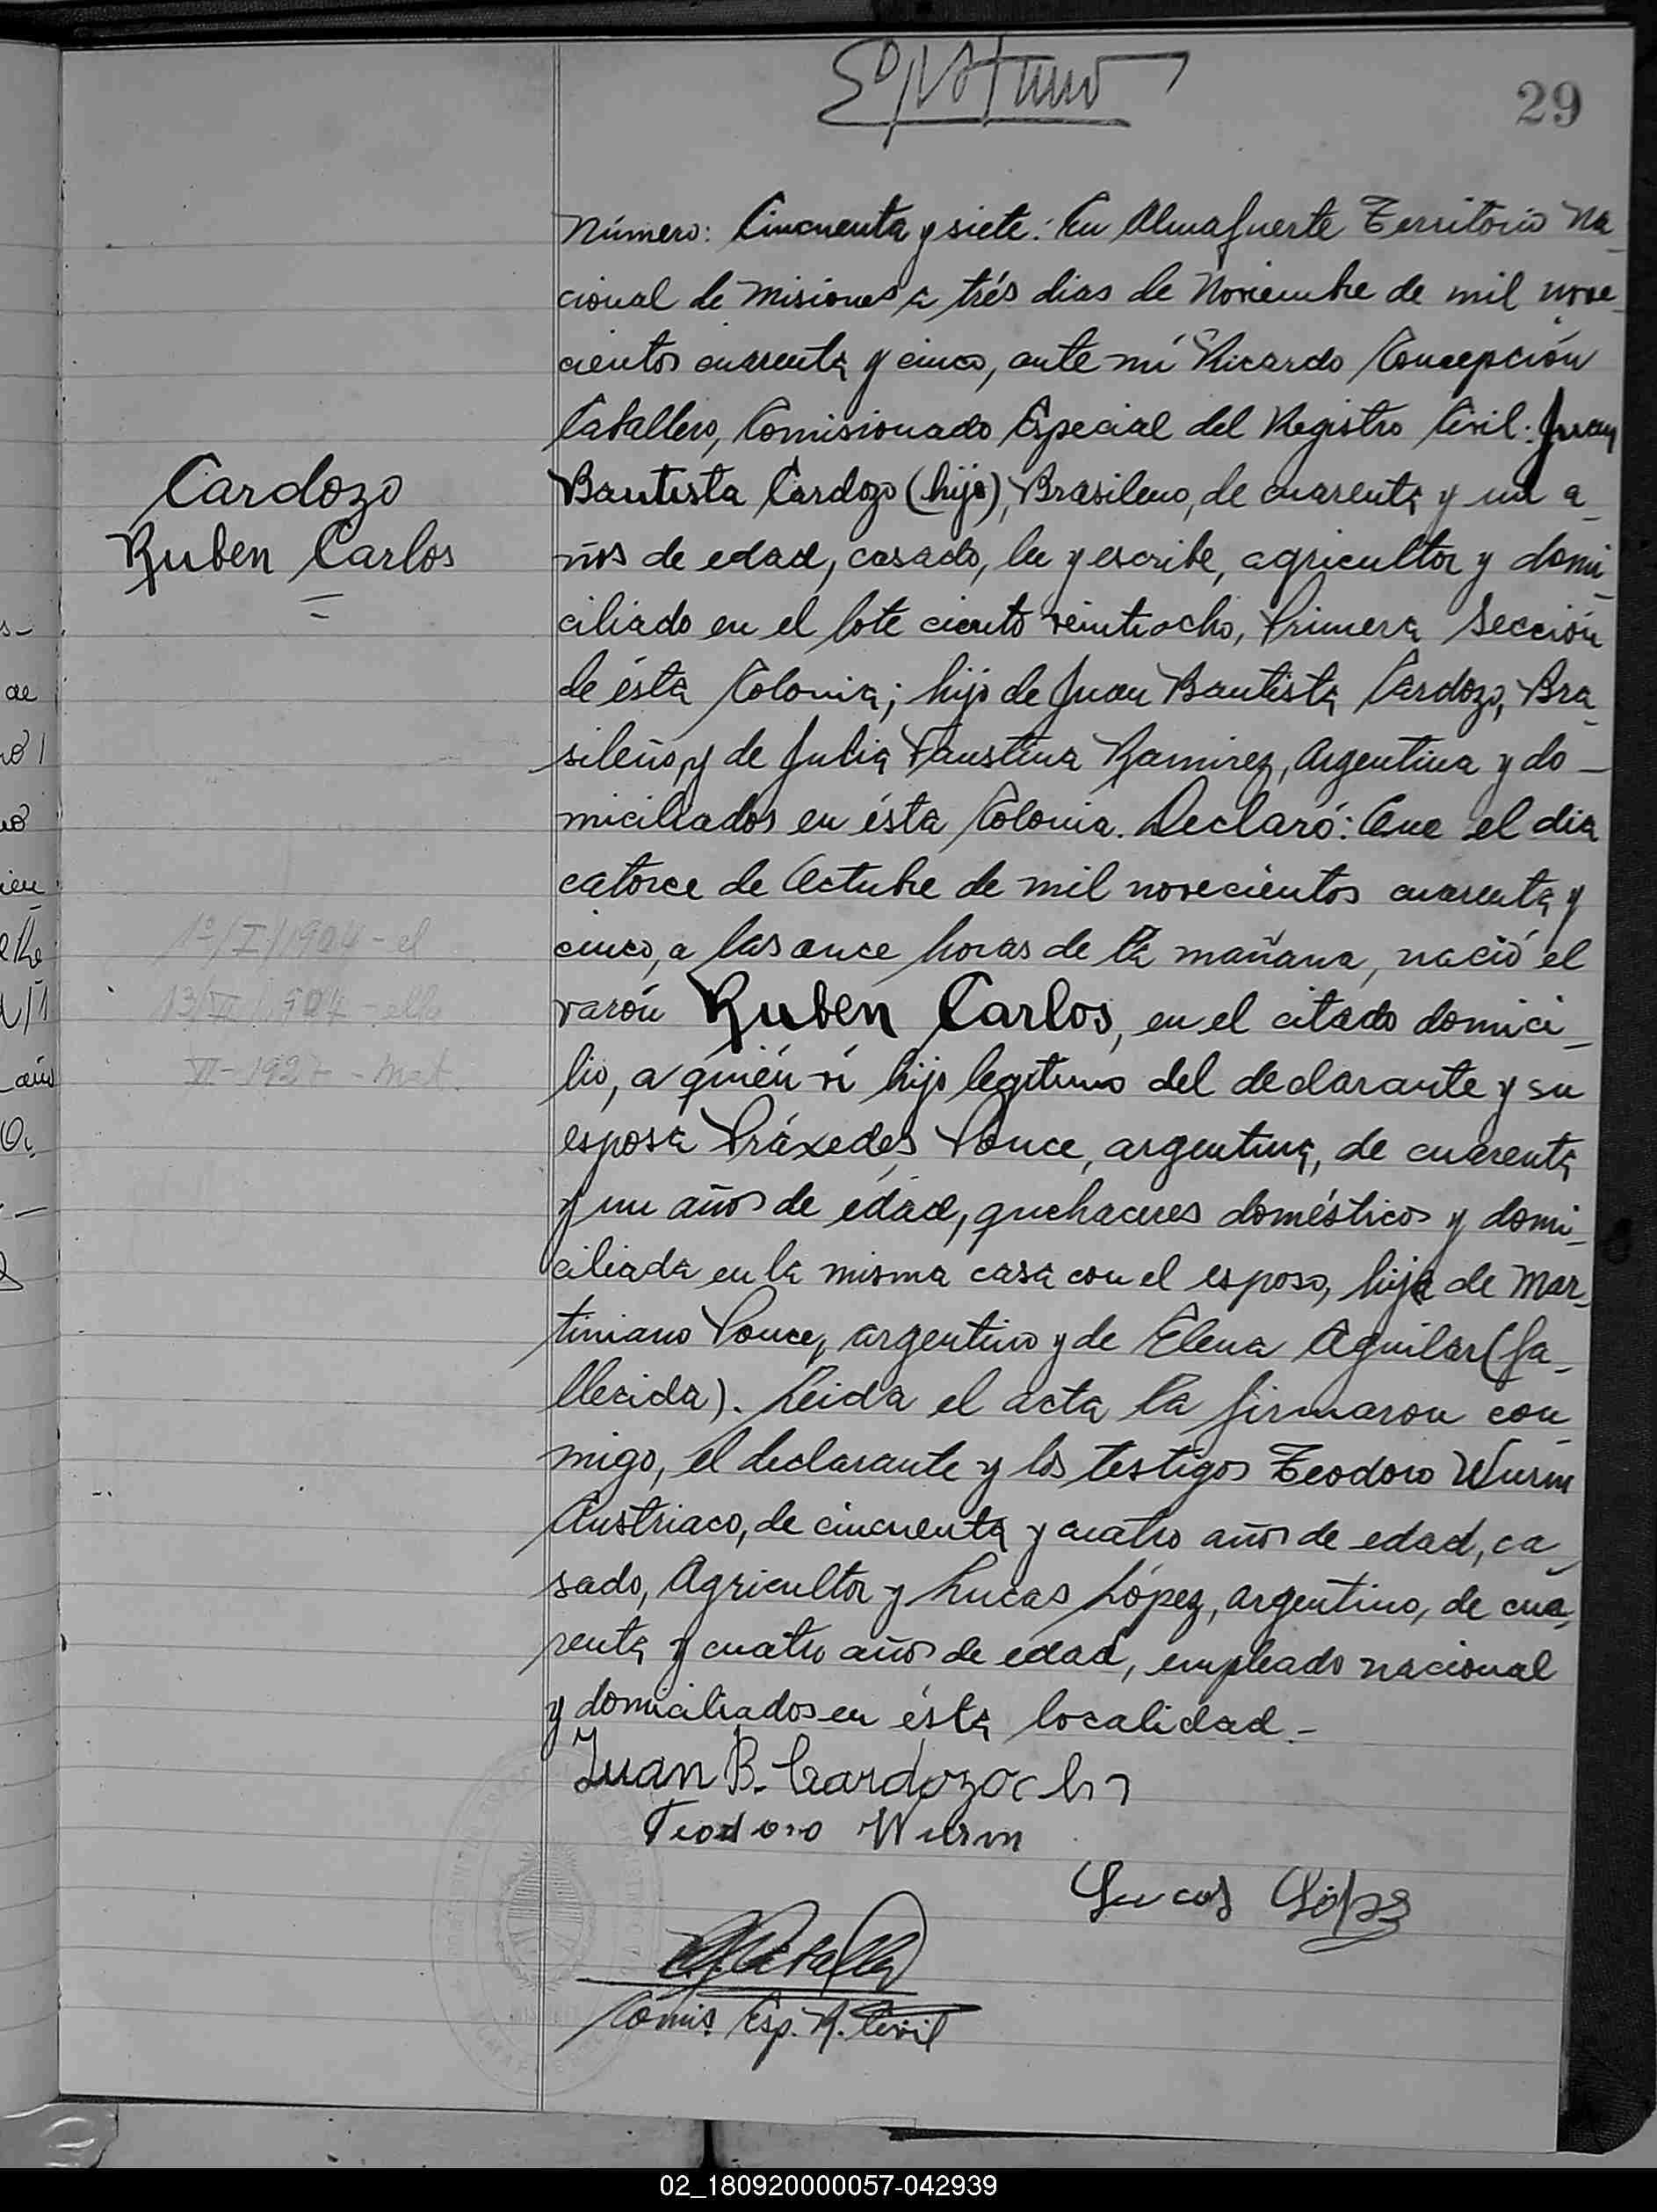 29
Número: Cincuenta y siete: En Almafuerte Territorio Na-
cional de Misiones a trés dias de Noviembre de mil nove-
cientos cuarenta y cinco, ante mí Ricardo Concepción
Caballero, Comisionado Especial del Registro Civil: Juan
Cardozo
Ruben Carlos
Bautista Cardozo (hijo), Brasileno, de cuarenta y un a-
ños de edad, casado, lee y escribe, agricultor y domi-
ciliado en el lote ciento veintiocho, Primera Sección
de ésta Colonia; hijo de Juan Bautista Cardozo, Bra-
sileño, y de Julia Faustina Ramirez, Argentina y do-
miciliados en ésta Colonia. Declaró: Que el dia
catorce de Octubre de mil novecientos cuarenta y
cinco, a las once horas de la mañana, nació el
varón Ruben Carlos, en el citado domici-
lio, a quién ví hijo legitimo del declarante y su
esposa Práxedes Ponce, argentina, de cuarenta
y un años de edad, quehaceres domésticos y domi-
ciliada en la misma casa con el esposo, hija de Mar-
tiniano Ponce, argentino y de Elena Aguilar (fa-
llecida). Leida el acta la firmaron con-
migo, el declarante y los testigos Teodoro Wurm
Austriaco, de cincuenta y cuatro años de edad, ca-
sado, Agricultor y Lucas López, argentino, de cua-
renta y cuatro años de edad, empleado nacional
y domiciliados en ésta localidad.-
1º/I/1904 - el
13/VI/1904 - ella
VI-1927 - Mat.
Juan B. Cardozo (h)
Teodoro Wurm
Lucas López
Comis. Esp. R. Civil
02_180920000057-042939